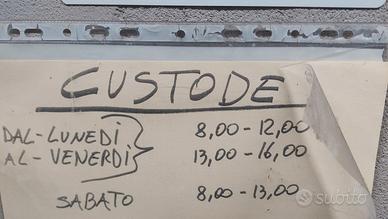 CUSTODE
DAL-LUNEDÌ 8,00-12,00
AL-VENERDÌ 13,00-16,00
SABATO 8,00-13,00
subito